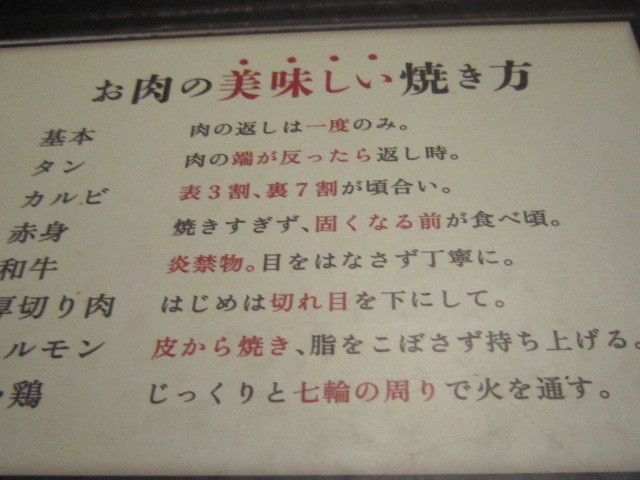 お肉の美味しい焼き方
基本 肉の返しは一度のみ。
タン 肉の端が反ったら返し時。
カルビ 表3割、裏7割が頃合い。
赤身 焼きすぎず、固くなる前が食べ頃。
和牛 炎禁物。目をはなさず丁寧に。
厚切り肉 はじめは切れ目を下にして。
ルモン 皮から焼き、脂をこぼさず持ち上げる。
鶏 じっくりと七輪の周りで火を通す。